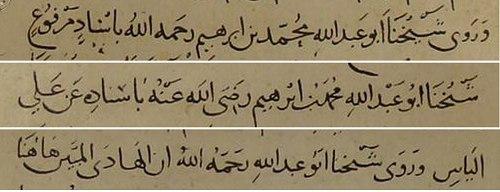 وروى شيخنا ابو عبد الله محمد بن ابرهيم رحمه الله باسناد مرفوع
شيخنا ابو عبد الله محمد بن ابرهيم رضى الله عنه باسناده عن علي
الياس وروى شيخنا ابو عبد الله رحمه الله ان الهادى المبين هاهنا